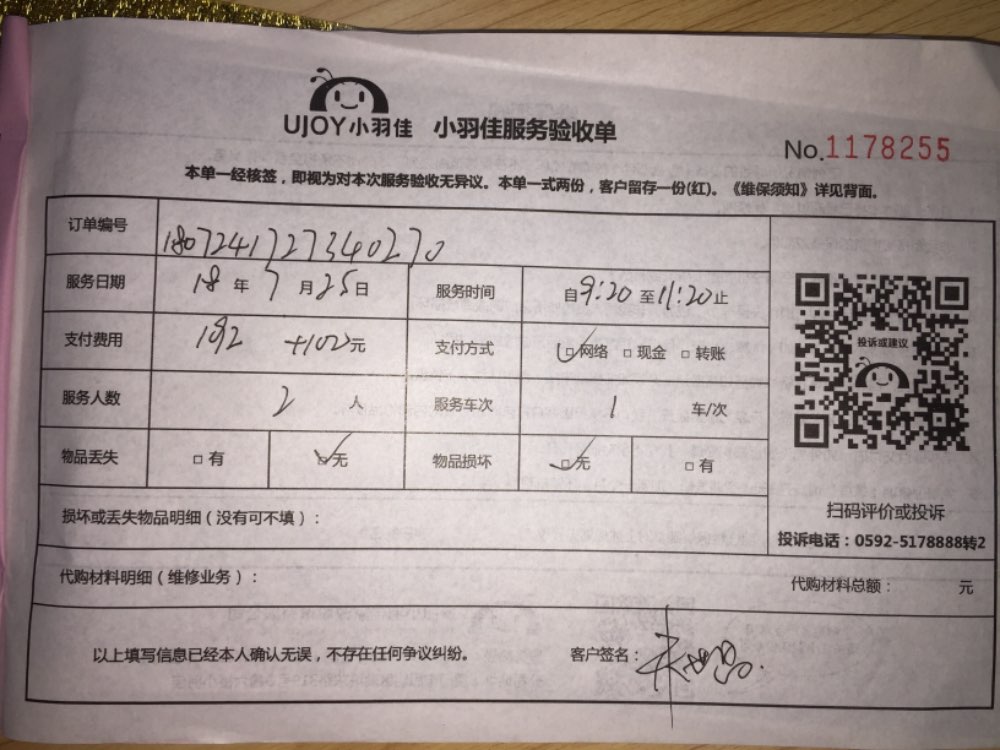 UJOY小羽佳 小羽佳服务验收单
No.1178255
本单一经核签，即视为对本次服务验收无异议。本单一式两份，客户留存一份(红)。《维保须知》详见背面。
订单编号 1807241727340270
服务日期 18年7月25日 服务时间 自9:20至11:20止
支付费用 192 +102元 支付方式 ☑网络 □现金 □转账
投诉或建议
服务人数 2人 服务车次 1 车/次
物品丢失 □有 ☑无 物品损坏 ☑无 □有
损坏或丢失物品明细（没有可不填）：
扫码评价或投诉
投诉电话：0592-5178888转2
代购材料明细（维修业务）： 代购材料总额： 元
以上填写信息已经本人确认无误，不存在任何争议纠纷。 客户签名：